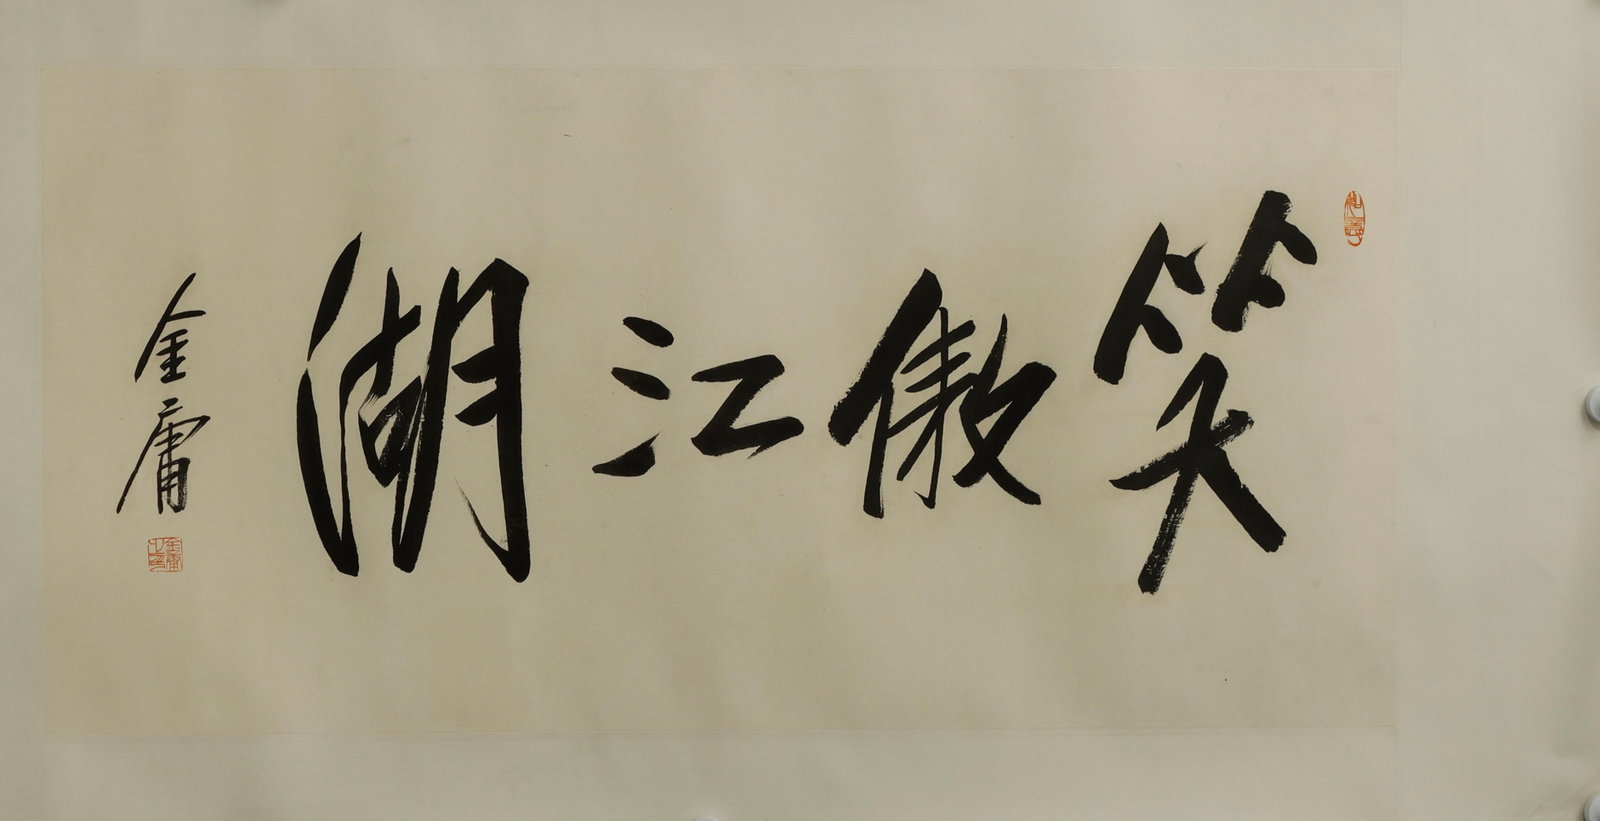 笑傲江湖
金庸
金庸之印